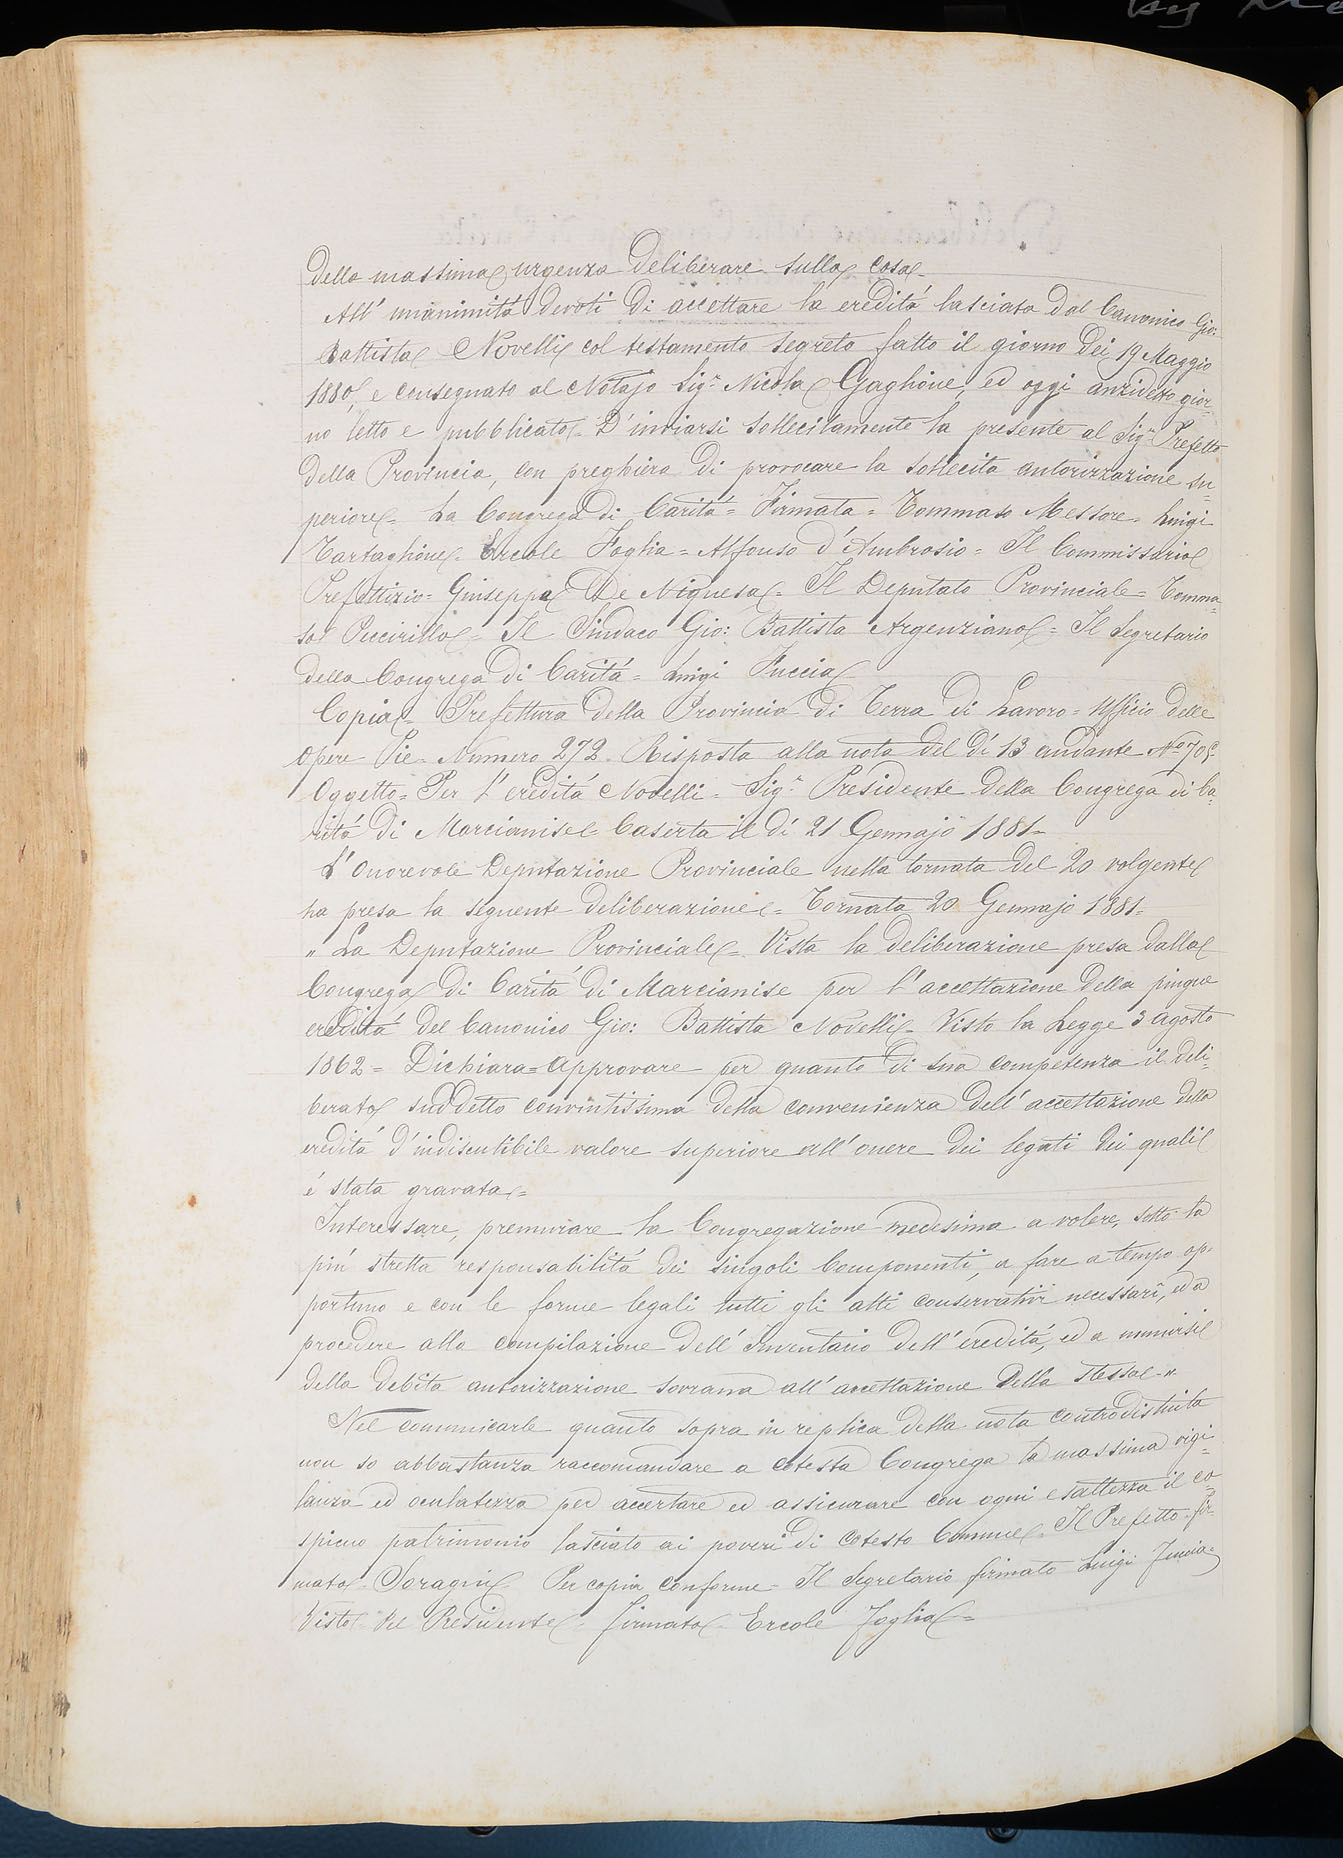 della massima urgenza deliberare sulla cosa
All' unanimitá devoti di accettare la ereditá lasciata dal Canonico Gio:
Battista Novelli col testamento segreto fatto il giorno dei 19 Maggio
1880, e consegnato al Notajo Sigr. Nicola Gaglione, ed oggi anzidetto gior=
no letto e pubblicato= D'inviarsi sollecitamente la presente al Sigr. Prefetto
della Provincia, con preghiera di provocare la sollecita autorizzazione su=
periore= La Congrega di Caritá= Firmata= Tommaso Messore= Luigi
Tartaglione= Ercole Foglia= Alfonso d'Ambrosio= Il Commissario
Prefettizio= Giuseppe De Niquesa= Il Deputato Provinciale= Tomma=
so Piccirillo= Il Sindaco Gio: Battista Argenziano= Il Segretario
della Congrega di Caritá= Luigi Fuccia
Copia= Prefettura della Provincia di Terra di Lavoro= Ufficio delle
Opere Pie= Numero 272. Risposta alla nota del dí 13 andante No 705=
Oggetto= Per l'ereditá Novelli= Sigr. Presidente della Congrega di Ca=
ritá di Marcianise= Caserta il dí 21 Gennajo 1881=
L'Onorevole Deputazione Provinciale nella tornata del 20 volgente
ha presa la seguente deliberazione= Tornata 20 Gennajo 1881=
" La Deputazione Provinciale= Vista la deliberazione presa dalla
Congrega di Caritá di Marcianise per l'accettazione della pingue
ereditá del Canonico Gio: Battista Novelli= Visto la Legge 3 agosto
1862= Dichiara= approvare per quanto di sua competenza il deli=
berato suddetto convintissima della convenienza dell'accettazione della
ereditá d'indiscutibile valore superiore all'onere dei legati dei quali
é stata gravata=
Interessare, premurare la Congregazione medesima a volere, sotto la
piú stretta responsabilitá dei singoli Componenti, a fare a tempo op=
portuno e con le forme legali tutti gli atti conservativi necessarî, ed a
procedere alla compilazione dell'inventario dell'ereditá, ed a munirsi
della debita autorizzazione sovrana all'accettazione della stessa= "
Nel comunicarle quanto sopra in replica della nota controdistinta
non so abbastanza raccomandare a cotesta Congrega la massima vigi=
lanza ed oculatezza per accertare ed assicurare con ogni esattezza il co=
spicuo patrimonio lasciato ai poveri di cotesto Comune= Il Prefetto= fir=
mato= Soragni= Per copia conforme= Il Segretario firmato Luigi Fuccia=
Visto= Pel Presidente= Firmato= Ercole Foglia=